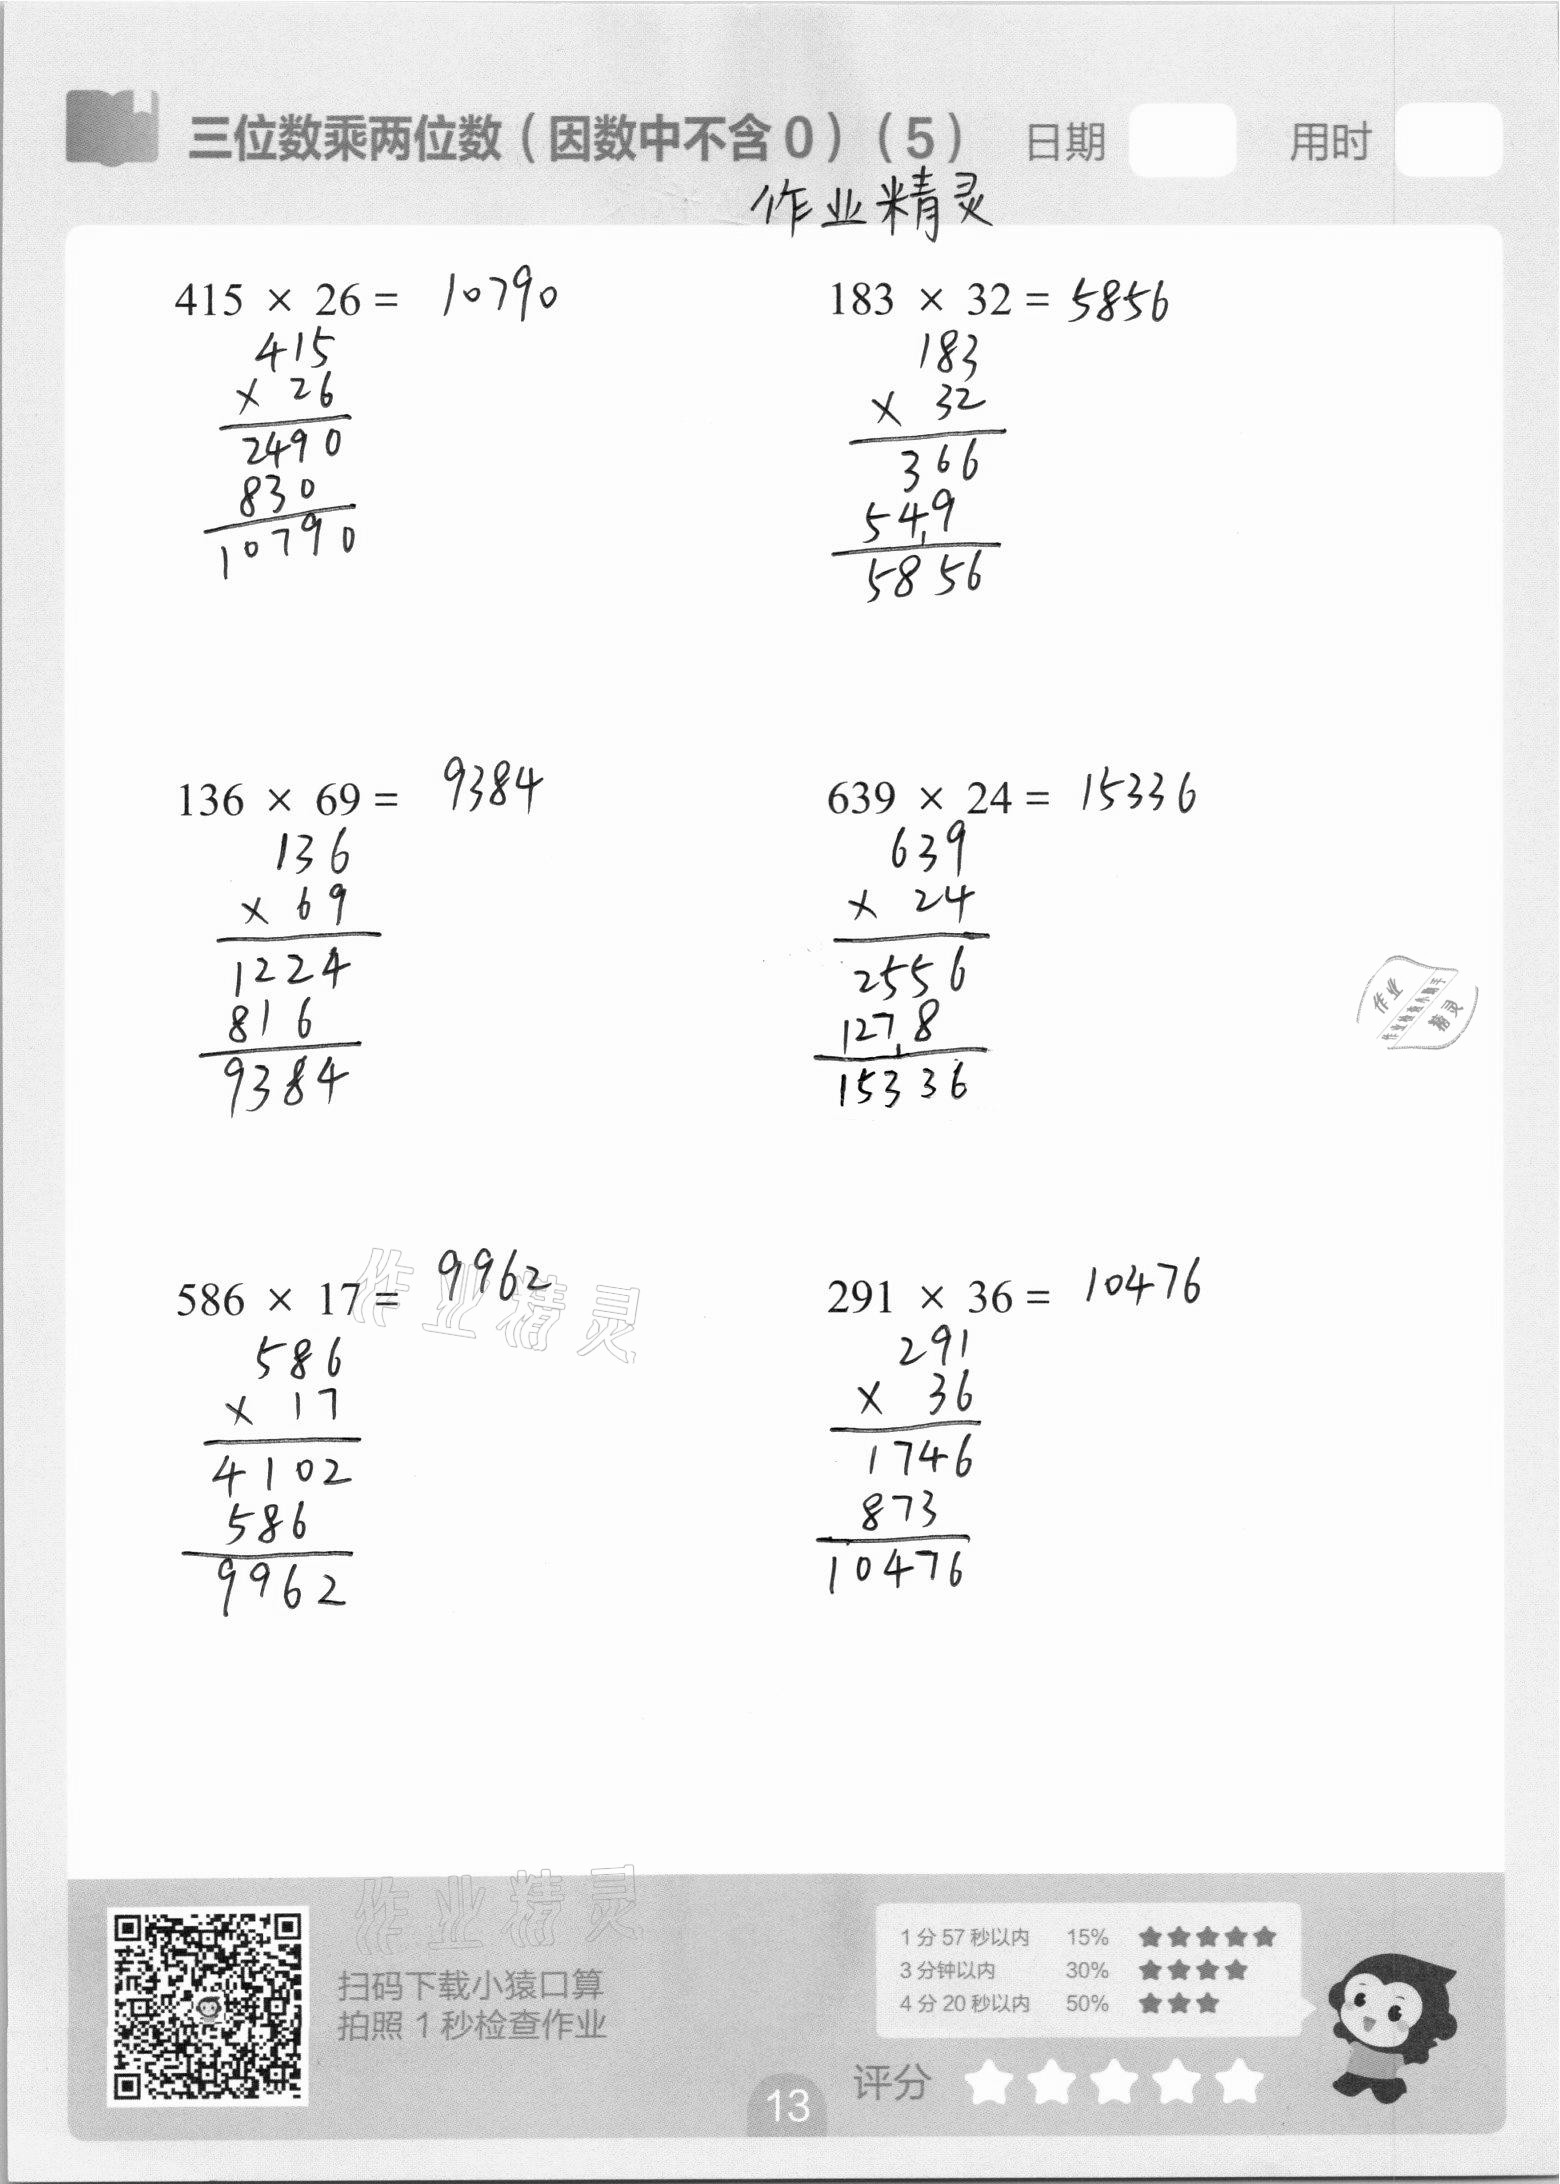 三位数乘两位数（因数中不含0）（5） 日期 用时
作业精灵
415 × 26 = 10790
415
× 26
2490
830
10790
183 × 32 = 5856
183
× 32
366
549
5856
136 × 69 = 9384
136
× 69
1224
816
9384
639 × 24 = 15336
639
× 24
2556
1278
15336
作业
精灵
586 × 17 = 9962
586
× 17
4102
586
9962
作业精灵
291 × 36 = 10476
291
× 36
1746
873
10476
作业精灵
扫码下载小猿口算
拍照 1 秒检查作业
1 分 57 秒以内 15% ★★★★★
3 分钟以内 30% ★★★★
4 分 20 秒以内 50% ★★★
评分
13